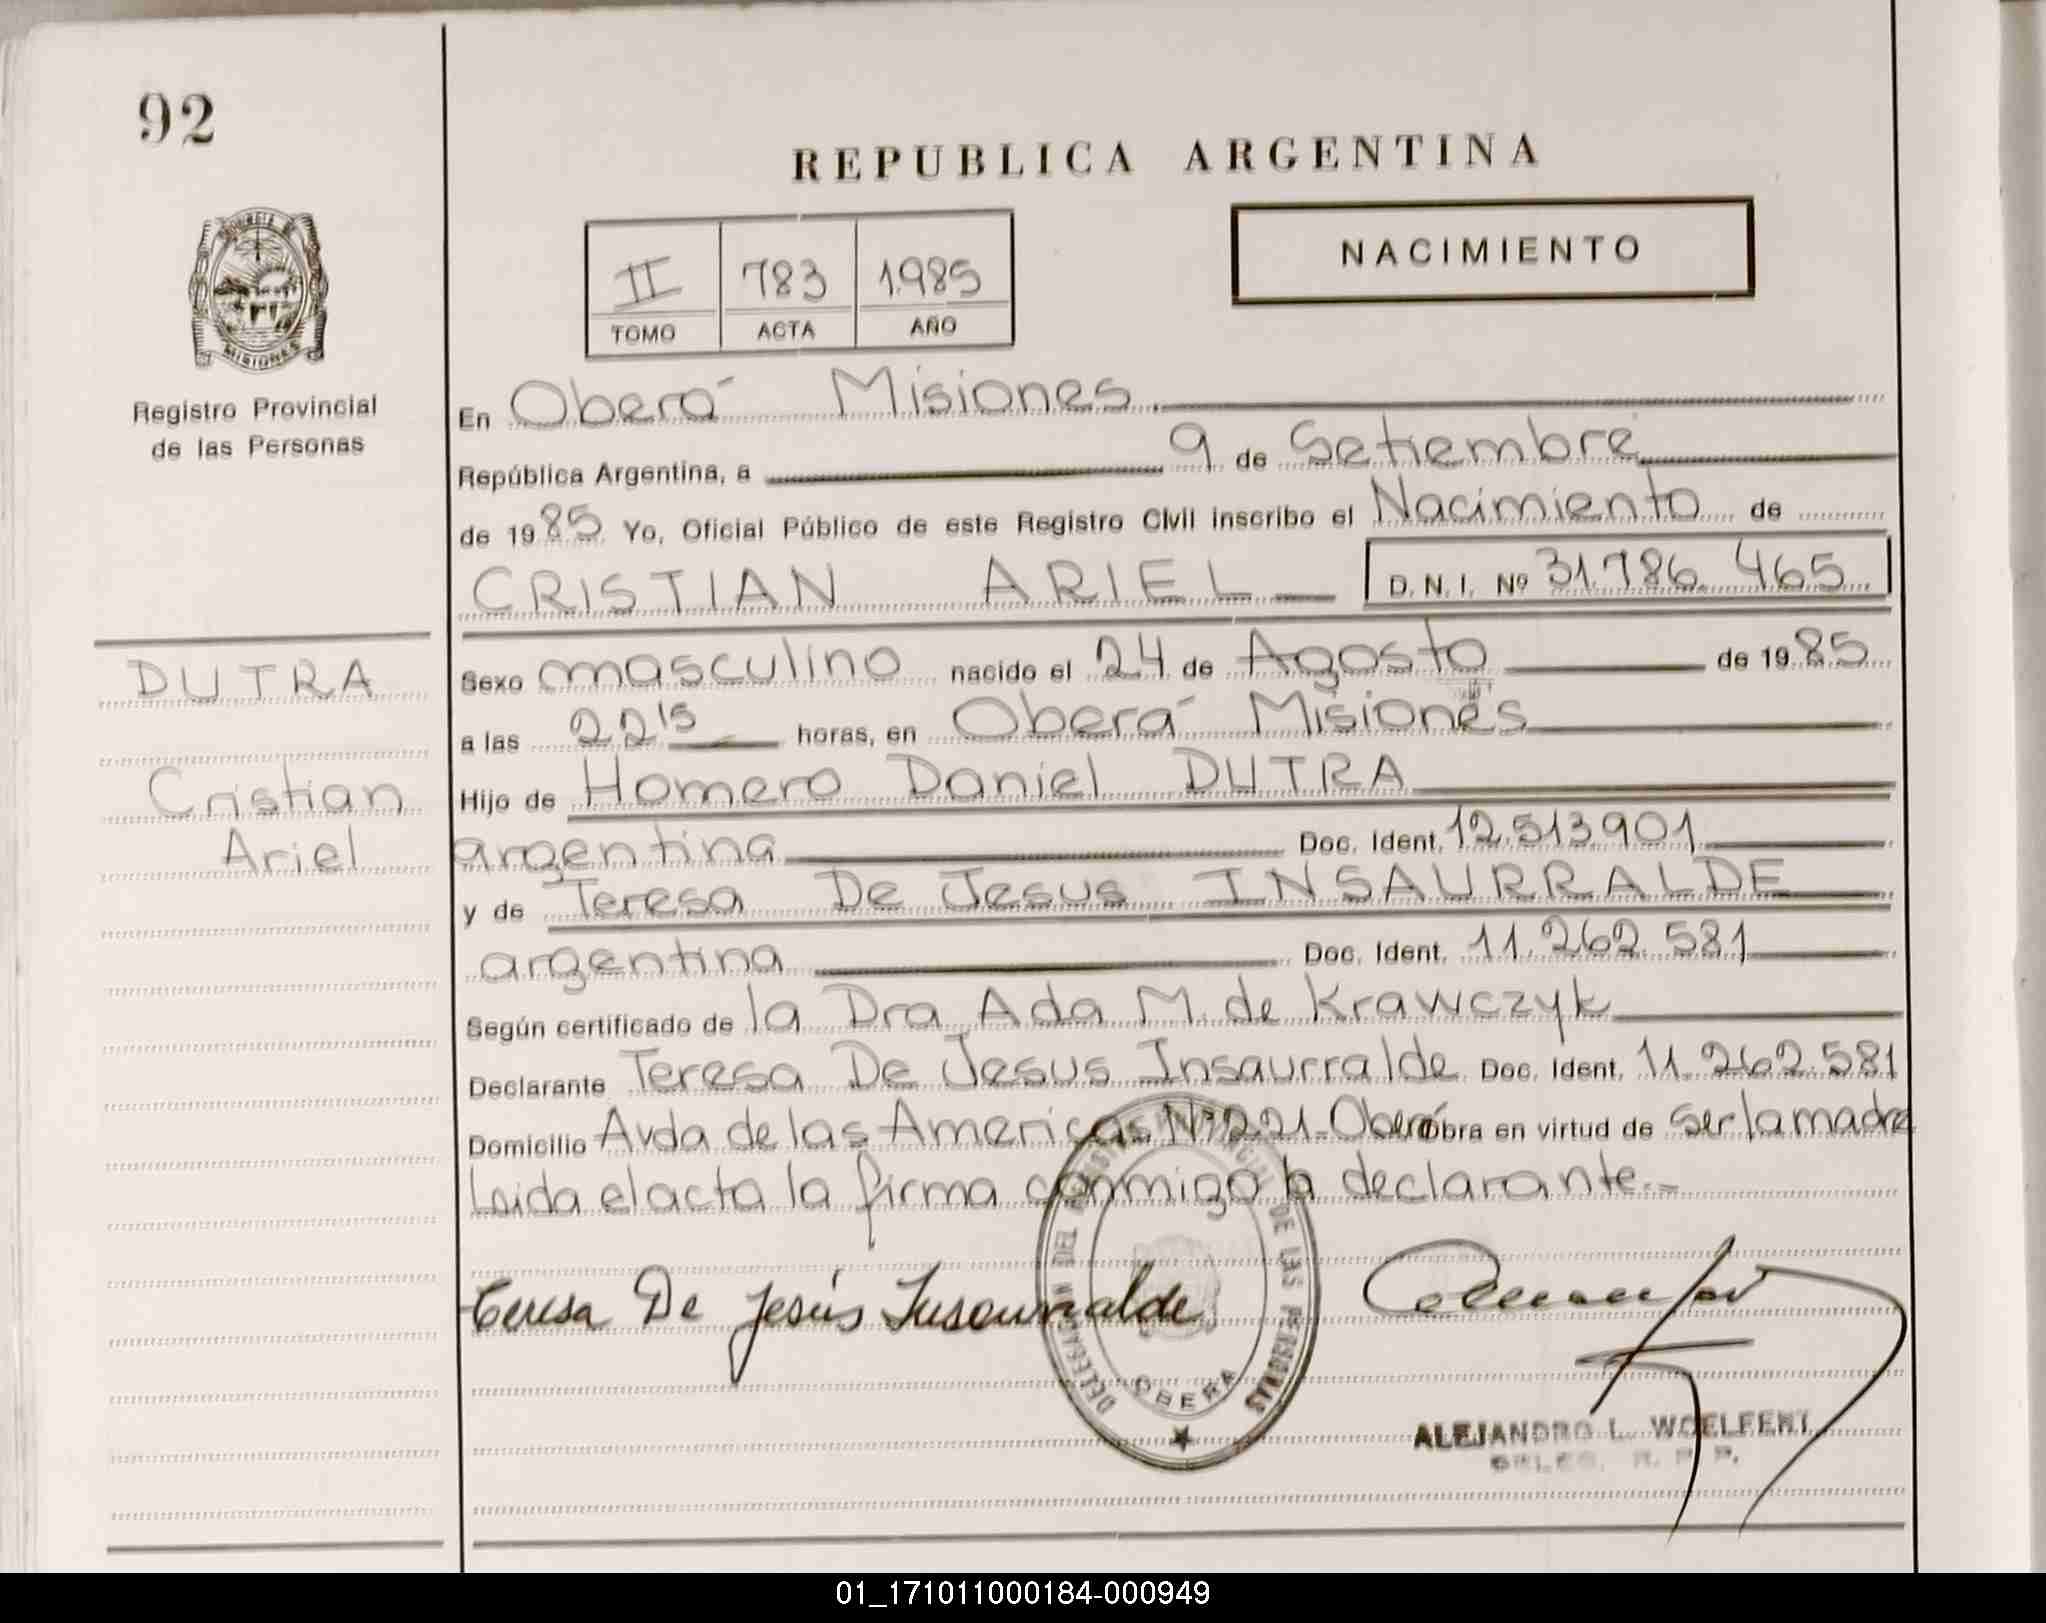 92
REPUBLICA ARGENTINA
NACIMIENTO
II 783 1.985
TOMO ACTA AÑO
MISIONES
Registro Provincial
de las Personas
En Oberá Misiones
República Argentina, a 9 de Setiembre
de 1985 Yo, Oficial Público de este Registro Civil inscribo el Nacimiento de
CRISTIAN ARIEL D.N.I. Nº 31.786.465
DUTRA
Cristian
Ariel
Sexo masculino nacido el 24 de Agosto de 1985
a las 22 15 horas, en Oberá Misiones
Hijo de Homero Daniel DUTRA
argentina Doc. Ident. 12.513.901
y de Teresa De Jesus INSAURRALDE
argentina Doc. Ident. 11.262.581
Según certificado de la Dra Ada M. de Krawczyk
Declarante Teresa De Jesus Insaurralde Doc. Ident. 11.262.581
Domicilio Avda de las Americas Nº 221-Oberá Obra en virtud de ser la madre
Leida el acta la firma conmigo la declarante.-
Teresa De Jesús Insaurralde
DELEGACION DEL REGISTRO PROVINCIAL DE LAS PERSONAS
OBERA
ALEJANDRO L. WOELFERT
DELEG. R. P. P.
01_171011000184-000949